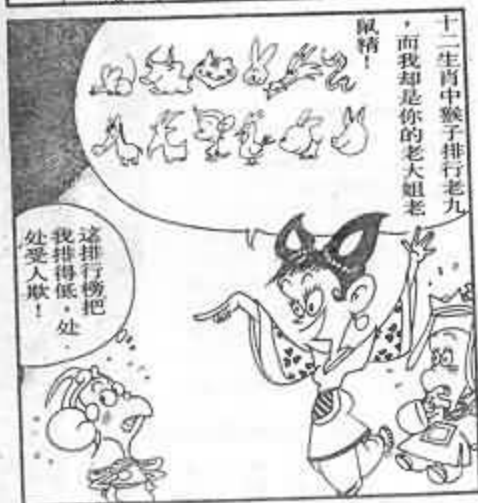 十二生肖中猴子排行老九
，而我却是你的老大姐老
鼠精！
这排行榜把
我排得低，处
处受人欺！